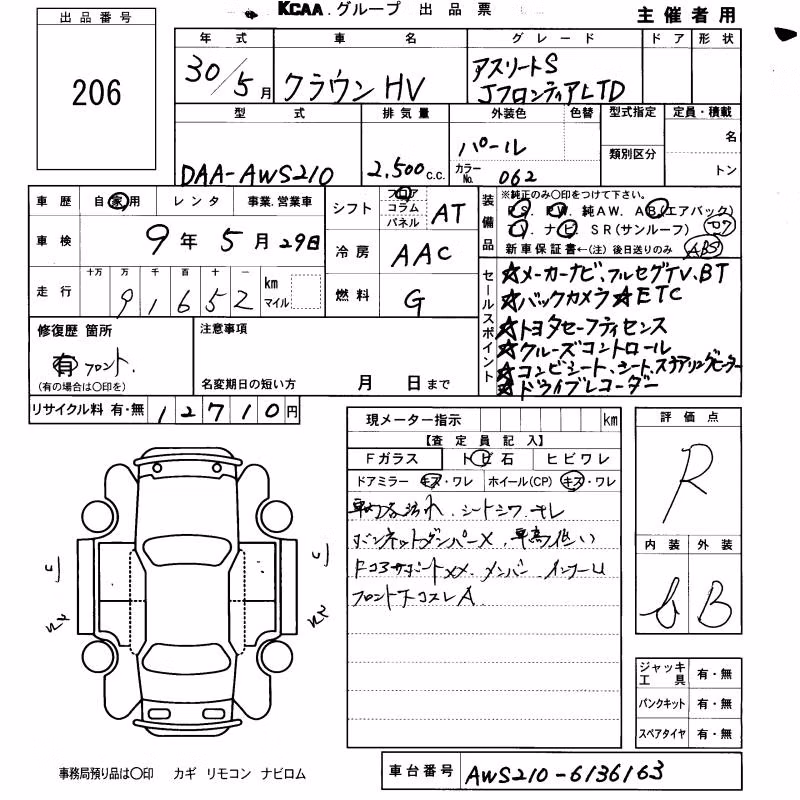 KCAA.グループ 出品票
主催者用
出品番号
206
年式 車名 グレード ドア 形状
30/5月 クラウン HV アスリートS
JフロンティアLTD
型式 排気量 外装色 色替 型式指定 定員・積載
DAA-AWS210 2,500c.c. パール 名
カラーNo. 062 類別区分 トン
車歴 自家用 レンタ 事業.営業車
車検 9年 5月 29日
走行 十万 万 千 百 十 一 km マイル
9 1 6 5 2
シフト フロア コラム パネル AT
冷房 AAC
燃料 G
装備品 ※純正のみ〇印をつけて下さい。
P S. P W. 純AW. AB(エアバック)
T V. ナビ SR(サンルーフ)
新車保証書←(注) 後日送りのみ ABS
セールスポイント
☆メーカーナビ、フルセグTV、BT
☆バックカメラ ☆ETC
☆トヨタセーフティセンス
☆クルーズコントロール
☆コンビシート、シート、ステアリングヒーター
☆ドライブレコーダー
修復歴 箇所 注意事項
有 フロント.
(有の場合は〇印を) 名変期日の短い方 月 日まで
リサイクル料 有・無 12710円
現メーター指示 km
【査定員記入】
Fガラス トビ石 ヒビワレ
ドアミラー キズ・ワレ ホイール(CP) キズ・ワレ
シートシワ キレ
ボンネットダンパーX. 車高低い
コアサポートXX. メンバー
フロント下コスレA
評価点
R
内装 外装
B
ジャッキ工具 有・無
パンクキット 有・無
スペアタイヤ 有・無
事務局預り品は〇印 カギ リモコン ナビロム
車台番号 AWS210-6136163